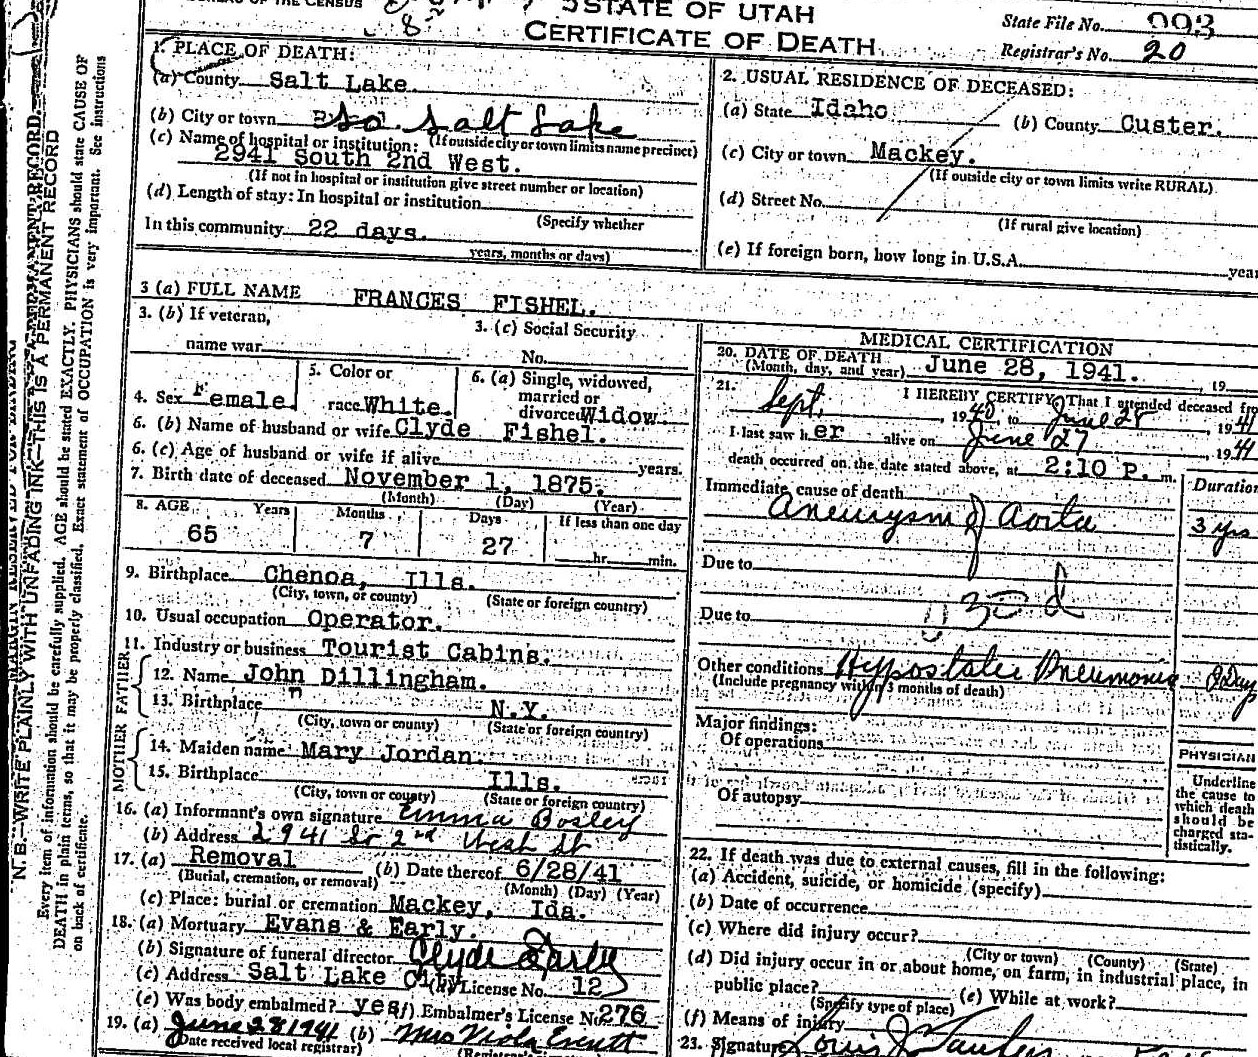 BUREAU OF THE CENSUS
STATE OF UTAH
CERTIFICATE OF DEATH
State File No. 993
Registrar's No. 20
1. PLACE OF DEATH:
(a) County Salt Lake.
(b) City or town So. Salt Lake
(If outside city or town limits name precinct)
(c) Name of hospital or institution:
2941 South 2nd West.
(If not in hospital or institution give street number or location)
(d) Length of stay: In hospital or institution
(Specify whether
In this community 22 days.
years, months or days)
2. USUAL RESIDENCE OF DECEASED:
(a) State Idaho (b) County Custer.
(c) City or town Mackey.
(If outside city or town limits write RURAL)
(d) Street No.
(If rural give location)
(e) If foreign born, how long in U.S.A. year
3 (a) FULL NAME FRANCES FISHEL.
3. (b) If veteran,
name war
3. (c) Social Security
No.
4. Sex Female.
5. Color or
race White.
6. (a) Single, widowed,
married or
divorced Widow.
6. (b) Name of husband or wife Clyde Fishel.
6. (c) Age of husband or wife if alive years.
7. Birth date of deceased November 1, 1875.
(Month) (Day) (Year)
8. AGE Years Months Days If less than one day
65 7 27 hr. min.
9. Birthplace Chenoa, Ills.
(City, town, or county) (State or foreign country)
10. Usual occupation Operator.
11. Industry or business Tourist Cabins.
FATHER
12. Name John Dillingham.
13. Birthplace " N.Y.
(City, town or county) (State or foreign country)
MOTHER
14. Maiden name Mary Jordan.
15. Birthplace Ills.
(City, town or county) (State or foreign country)
16. (a) Informant's own signature Emma Bosley
(b) Address 2941 So 2nd West St
17. (a) Removal (b) Date thereof 6/28/41
(Burial, cremation, or removal) (Month) (Day) (Year)
(c) Place: burial or cremation Mackey, Ida.
18. (a) Mortuary Evans & Early.
(b) Signature of funeral director Clyde Early
(c) Address Salt Lake City License No. 12
(e) Was body embalmed? yes (f) Embalmer's License No. 276
19. (a) June 28 1941 (b) Mrs Viola Everett
Date received local registrar)
MEDICAL CERTIFICATION
20. DATE OF DEATH
(Month, day, and year) June 28, 1941. , 19
21. I HEREBY CERTIFY, That I attended deceased fr
Sept. , 1940, to June 28 1941
I last saw her alive on June 27 , 1941
death occurred on the date stated above, at 2:10 P. m.
Duration
Immediate cause of death
Aneurysm of Aorta 3 yrs
Due to
Due to
Other conditions Hypostatic Pneumonia
(Include pregnancy within 3 months of death)
Major findings:
Of operations
Of autopsy
PHYSICIAN
Underline
the cause to
which death
should be
charged sta-
tistically.
22. If death was due to external causes, fill in the following:
(a) Accident, suicide, or homicide (specify)
(b) Date of occurrence
(c) Where did injury occur?
(City or town) (County) (State)
(d) Did injury occur in or about home, on farm, in industrial place, in
public place? (e) While at work?
(Specify type of place)
(f) Means of injury
23. Signature Louis J.
N. B.—WRITE PLAINLY WITH UNFADING INK—THIS IS A PERMANENT RECORD
Every item of information should be carefully supplied. AGE should be stated EXACTLY. PHYSICIANS should state CAUSE OF
DEATH in plain terms, so that it may be properly classified. Exact statement of OCCUPATION is very important. See instructions
on back of certificate.